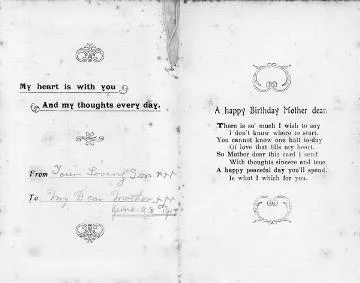 My heart is with you
And my thoughts every day.
From Your Loving Son xxx
To My Dear Mother xxx
June 28th 1917
A happy Birthday Mother dear.
There is so much I wish to say
I don't know where to start.
You cannot know one half to-day
Of love that fills my heart.
So Mother dear this card I send
With thoughts sincere and true.
A happy peaceful day you'll spend.
Is what I which for you.